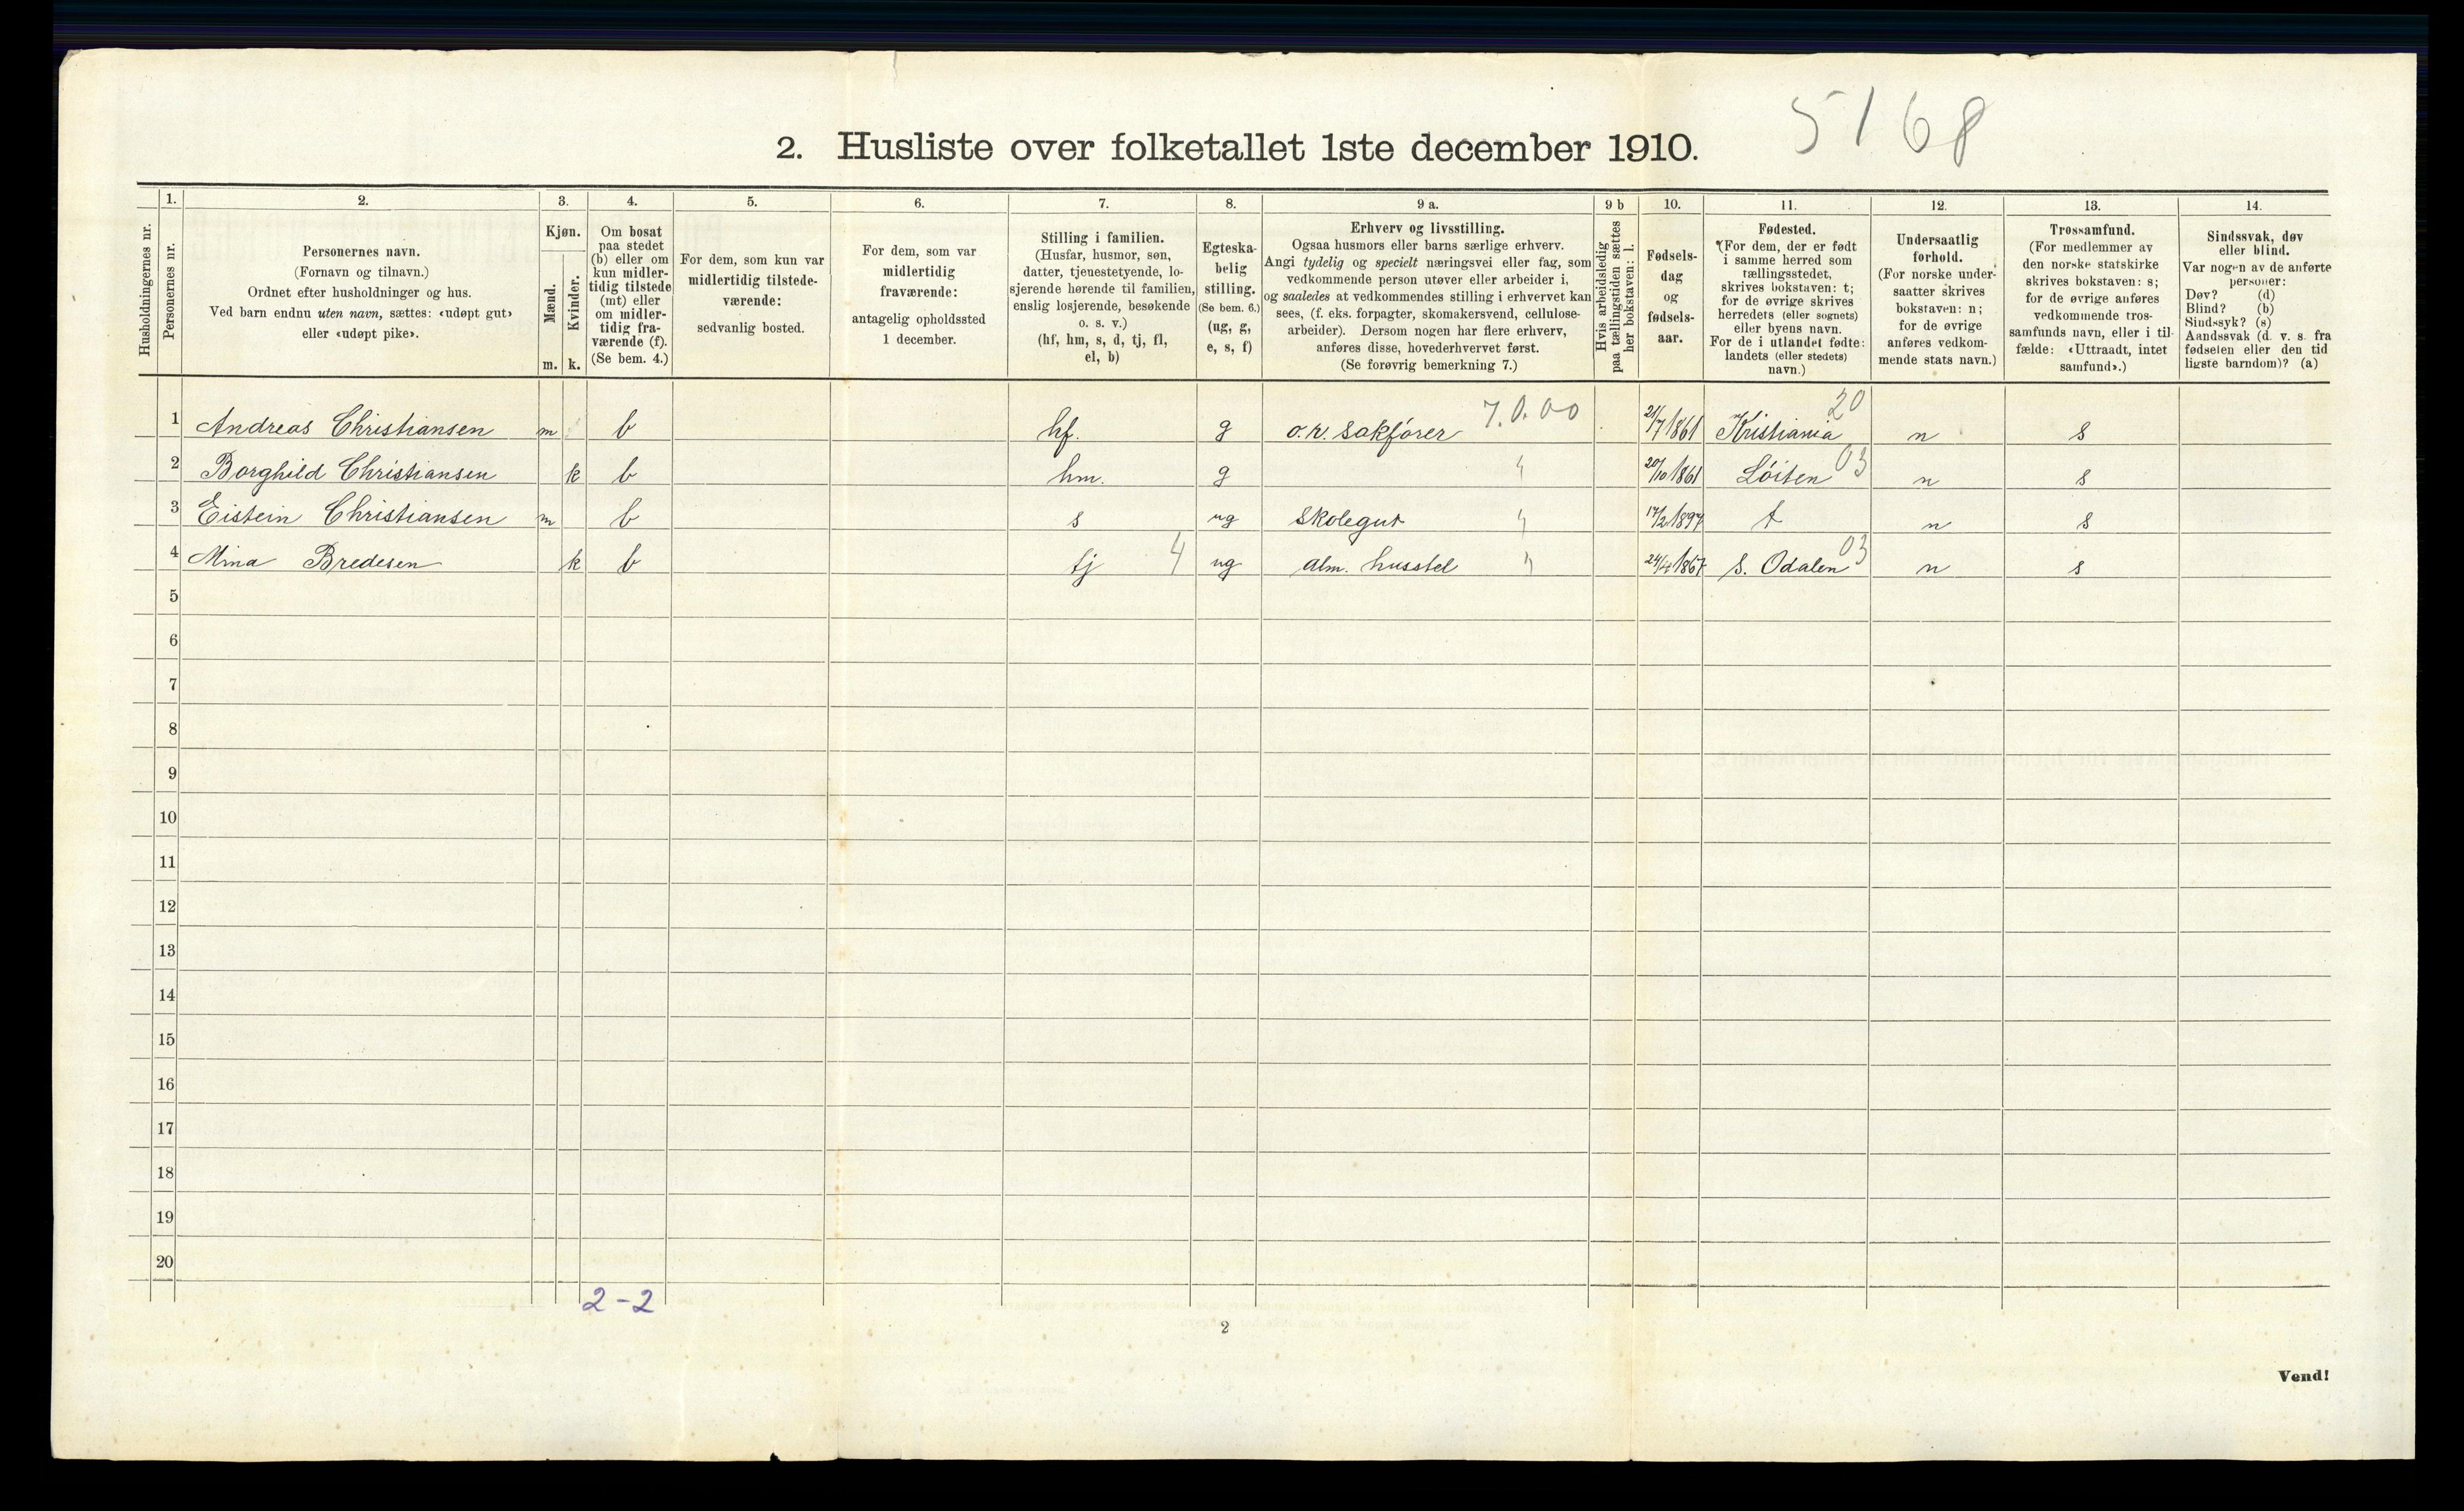 5168
2. Husliste over folketallet 1ste december 1910.
Husholdningernes nr.
1.
Personernes nr.
2.
Personernes navn.
(Fornavn og tilnavn.)
Ordnet efter husholdninger og hus.
Ved barn endnu uten navn, sættes: «udøpt gut»
eller «udøpt pike».
3.
Kjøn.
Mænd.
Kvinder.
m. k.
4.
Om bosat
paa stedet
(b) eller om
kun midler-
tidig tilstede
(mt) eller
om midler-
tidig fra-
værende (f).
(Se bem. 4.)
5.
For dem, som kun var
midlertidig tilstede-
værende:
sedvanlig bosted.
6.
For dem, som var
midlertidig
fraværende:
antagelig opholdssted
1 december.
7.
Stilling i familien.
(Husfar, husmor, søn,
datter, tjenestetyende, lo-
sjerende hørende til familien,
enslig losjerende, besøkende
o. s. v.)
(hf, hm, s, d, tj, fl,
el, b)
8.
Egteska-
belig
stilling.
(Se bem. 6.)
(ug, g,
e, s, f)
9 a.
Erhverv og livsstilling.
Ogsaa husmors eller barns særlige erhverv.
Angi tydelig og specielt næringsvei eller fag, som
vedkommende person utøver eller arbeider i,
og saaledes at vedkommendes stilling i erhvervet kan
sees, (f. eks. forpagter, skomakersvend, cellulose-
arbeider). Dersom nogen har flere erhverv,
anføres disse, hovederhvervet først.
(Se forøvrig bemerkning 7.)
9 b
Hvis arbeidsledig
paa tællingstiden sættes
her bokstaven: l.
10.
Fødsels-
dag
og
fødsels-
aar.
11.
Fødested.
(For dem, der er født
i samme herred som
tællingsstedet,
skrives bokstaven: t;
for de øvrige skrives
herredets (eller sognets)
eller byens navn.
For de i utlandet fødte:
landets (eller stedets)
navn.)
12.
Undersaatlig
forhold.
(For norske under-
saatter skrives
bokstaven: n;
for de øvrige
anføres vedkom-
mende stats navn.)
13.
Trossamfund.
(For medlemmer av
den norske statskirke
skrives bokstaven: s;
for de øvrige anføres
vedkommende tros-
samfunds navn, eller i til-
fælde: «Uttraadt, intet
samfund».)
14.
Sindssvak, døv
eller blind.
Var nogen av de anførte
personer:
Døv? (d)
Blind? (b)
Sindssyk? (s)
Aandssvak (d. v. s. fra
fødselen eller den tid
ligste barndom)? (a)
1 Andreas Christiansen m b hf. g o.r. sakfører 7.0.00 21/7 1861 Kristiania 20 n s
2 Borghild Christiansen k b hm. g 20/10 1861 Løiten 03 n s
3 Eistein Christiansen m b s ug Skolegut 17/2 1897 t n s
4 Mina Bredesen k b tj 4 ug alm. husstel 24/4 1867 S. Odalen 03 n s
5
6
7
8
9
10
11
12
13
14
15
16
17
18
19
20
2-2
2
Vend!